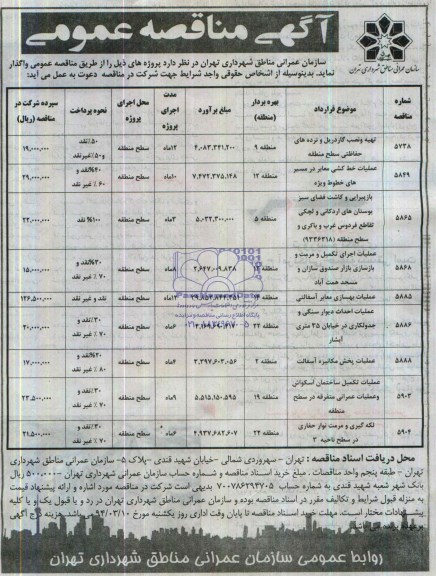 آگهی مناقصه عمومی
سازمان عمرانی مناطق شهرداری تهران
سازمان عمرانی مناطق شهرداری تهران در نظر دارد پروژه های ذیل را از طریق مناقصه عمومی واگذار
نماید. بدینوسیله از اشخاص حقوقی واجد شرایط جهت شرکت در مناقصه دعوت به عمل می آید:
شماره مناقصه | موضوع قرارداد | بهره بردار (منطقه) | مبلغ برآورد | مدت اجرای پروژه | محل اجرای پروژه | نحوه پرداخت | سپرده شرکت در مناقصه (ریال)
۵۷۳۸ | تهیه ونصب گاردریل و نرده های حفاظتی سطح منطقه | منطقه ۹ | ۴,۰۸۳,۳۴۱,۲۰۰ | ۱۲ماه | سطح منطقه | ۵۰٪نقد و۵۰٪غیرنقد | ۱۹,۰۰۰,۰۰۰
۵۸۴۹ | عملیات خط کشی معابر در مسیر های خطوط ویژه | منطقه ۱۲ | ۷,۴۷۲,۳۷۵,۱۴۸ | ۱۰ماه | سطح منطقه | ۴۰٪نقد و ۶۰٪ غیر نقد | ۲۹,۰۰۰,۰۰۰
۵۸۶۵ | بازپیرایی و کاشت فضای سبز بوستان های اردکانی و لچکی تقاطع فردوس غرب و باکری و سطح منطقه (۹۳۳۶۳۱۸) | منطقه ۵ | ۵,۰۳۲,۳۰۰,۰۰۰ | ۳ماه | سطح منطقه | ۱۰۰٪ نقد | ۲۲,۰۰۰,۰۰۰
۵۸۶۸ | عملیات اجرای تکمیل و مرمت و بازسازی بازار صندوق سازان و مسجد همت آباد | منطقه ۱۲ | ۲,۶۴۷,۰۰۹,۸۳۸ | ۸ماه | سطح منطقه | ۳۰٪نقد و ۷۰٪ غیر نقد | ۱۵,۰۰۰,۰۰۰
۵۸۸۵ | عملیات بهسازی معابر آسفالتی | منطقه ۱۴ | | ۱۲ماه | سطح منطقه | نقد و غیر نقد | ۱۲۶,۵۰۰,۰۰۰
۵۸۸۶ | عملیات احداث دیوار سنگی و جدولکاری در خیابان ۳۵ متری آبشار | منطقه ۲۲ | | ۶ماه | سطح منطقه | ۳۰٪نقد و ۷۰٪ غیر نقد | ۲۰,۰۰۰,۰۰۰
۵۸۸۸ | عملیات پخش مکانیزه آسفالت | منطقه ۲ | ۳,۳۹۷,۶۰۳,۰۵۶ | ۴ماه | سطح منطقه | ۲۰٪نقد و ۸۰٪ غیر نقد | ۱۷,۰۰۰,۰۰۰
۵۹۰۳ | عملیات تکمیل ساختمان اسکواش وعملیات عمرانی متفرقه در سطح منطقه | منطقه ۱۹ | ۵,۵۱۵,۱۵۰,۵۹۵ | ۹ماه | سطح منطقه | ۳۰٪نقد و ۷۰٪ غیر نقد | ۲۳,۵۰۰,۰۰۰
۵۹۰۴ | لکه گیری و مرمت نوار حفاری در سطح ناحیه ۳ | منطقه ۲۲ | ۴,۹۳۷,۶۸۲,۶۰۷ | ۶ماه | سطح منطقه | ۳۰٪نقد و ۷۰٪ غیر نقد | ۲۱,۵۰۰,۰۰۰
محل دریافت اسناد مناقصه : تهران – سهروردی شمالی –خیابان شهید قندی –پلاک ۵– سازمان عمرانی مناطق شهرداری
تهران – طبقه پنجم واحد مناقصات . مبلغ خرید اسناد مناقصه و شماره حساب سازمان عمرانی شهرداری تهران –۵۰۰,۰۰۰ ریال
بانک شهر شعبه شهید قندی به شماره حساب ۷۰۰۷۸۶۲۹۳۷۰۵ بدیهی است شرکت در مناقصه مورد اشاره و ارائه پیشنهاد قیمت
به منزله قبول شرایط و تکالیف مقرر در اسناد مناقصه بوده و سازمان عمرانی مناطق شهرداری تهران در رد و یا قبول یک و یا کلیه
پیشنهادات مختار است. مهلت خرید اسناد مناقصه تا پایان وقت اداری روز یکشنبه مورخ ۹۴/۰۳/۱۰ می باشد. هزینه درج آگهی
روابط عمومی سازمان عمرانی مناطق شهرداری تهران